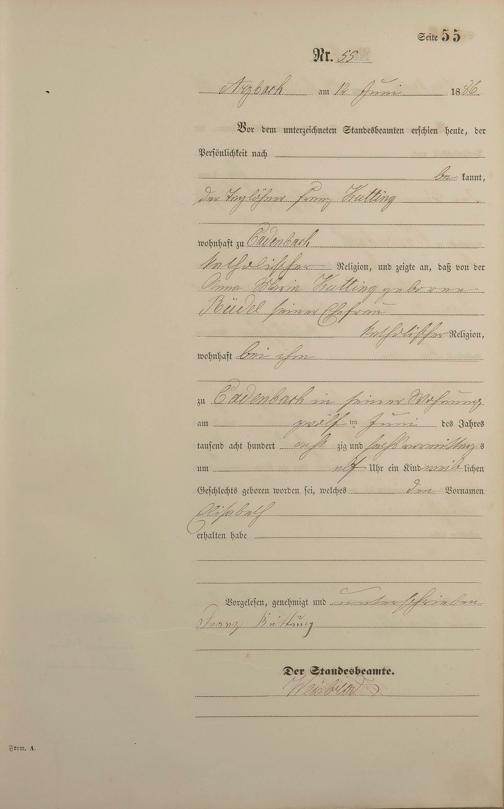 Seite 55
Nr. 55
Arzbach am 12 Juni 1886.
Vor dem unterzeichneten Standesbeamten erschien heute, der
Persönlichkeit nach
be kannt,
der Taglöhner Franz Kutting
wohnhaft zu Cadenbach
katholischer Religion, und zeigte an, daß von der
Anna Maria Kutting geborene
seiner Ehefrau
katholischer Religion,
wohnhaft bei ihm
zu Cadenbach in seiner Wohnung
am zwölf ten Juni des Jahres
tausend acht hundert acht zig und sechs vormittag s
um elf Uhr ein Kind weib lichen
Geschlechts geboren worden sei, welches den Vornamen
Elisabeth
erhalten habe
Vorgelesen, genehmigt und unterschrieben
Franz Kutting
Der Standesbeamte.
Form. A.